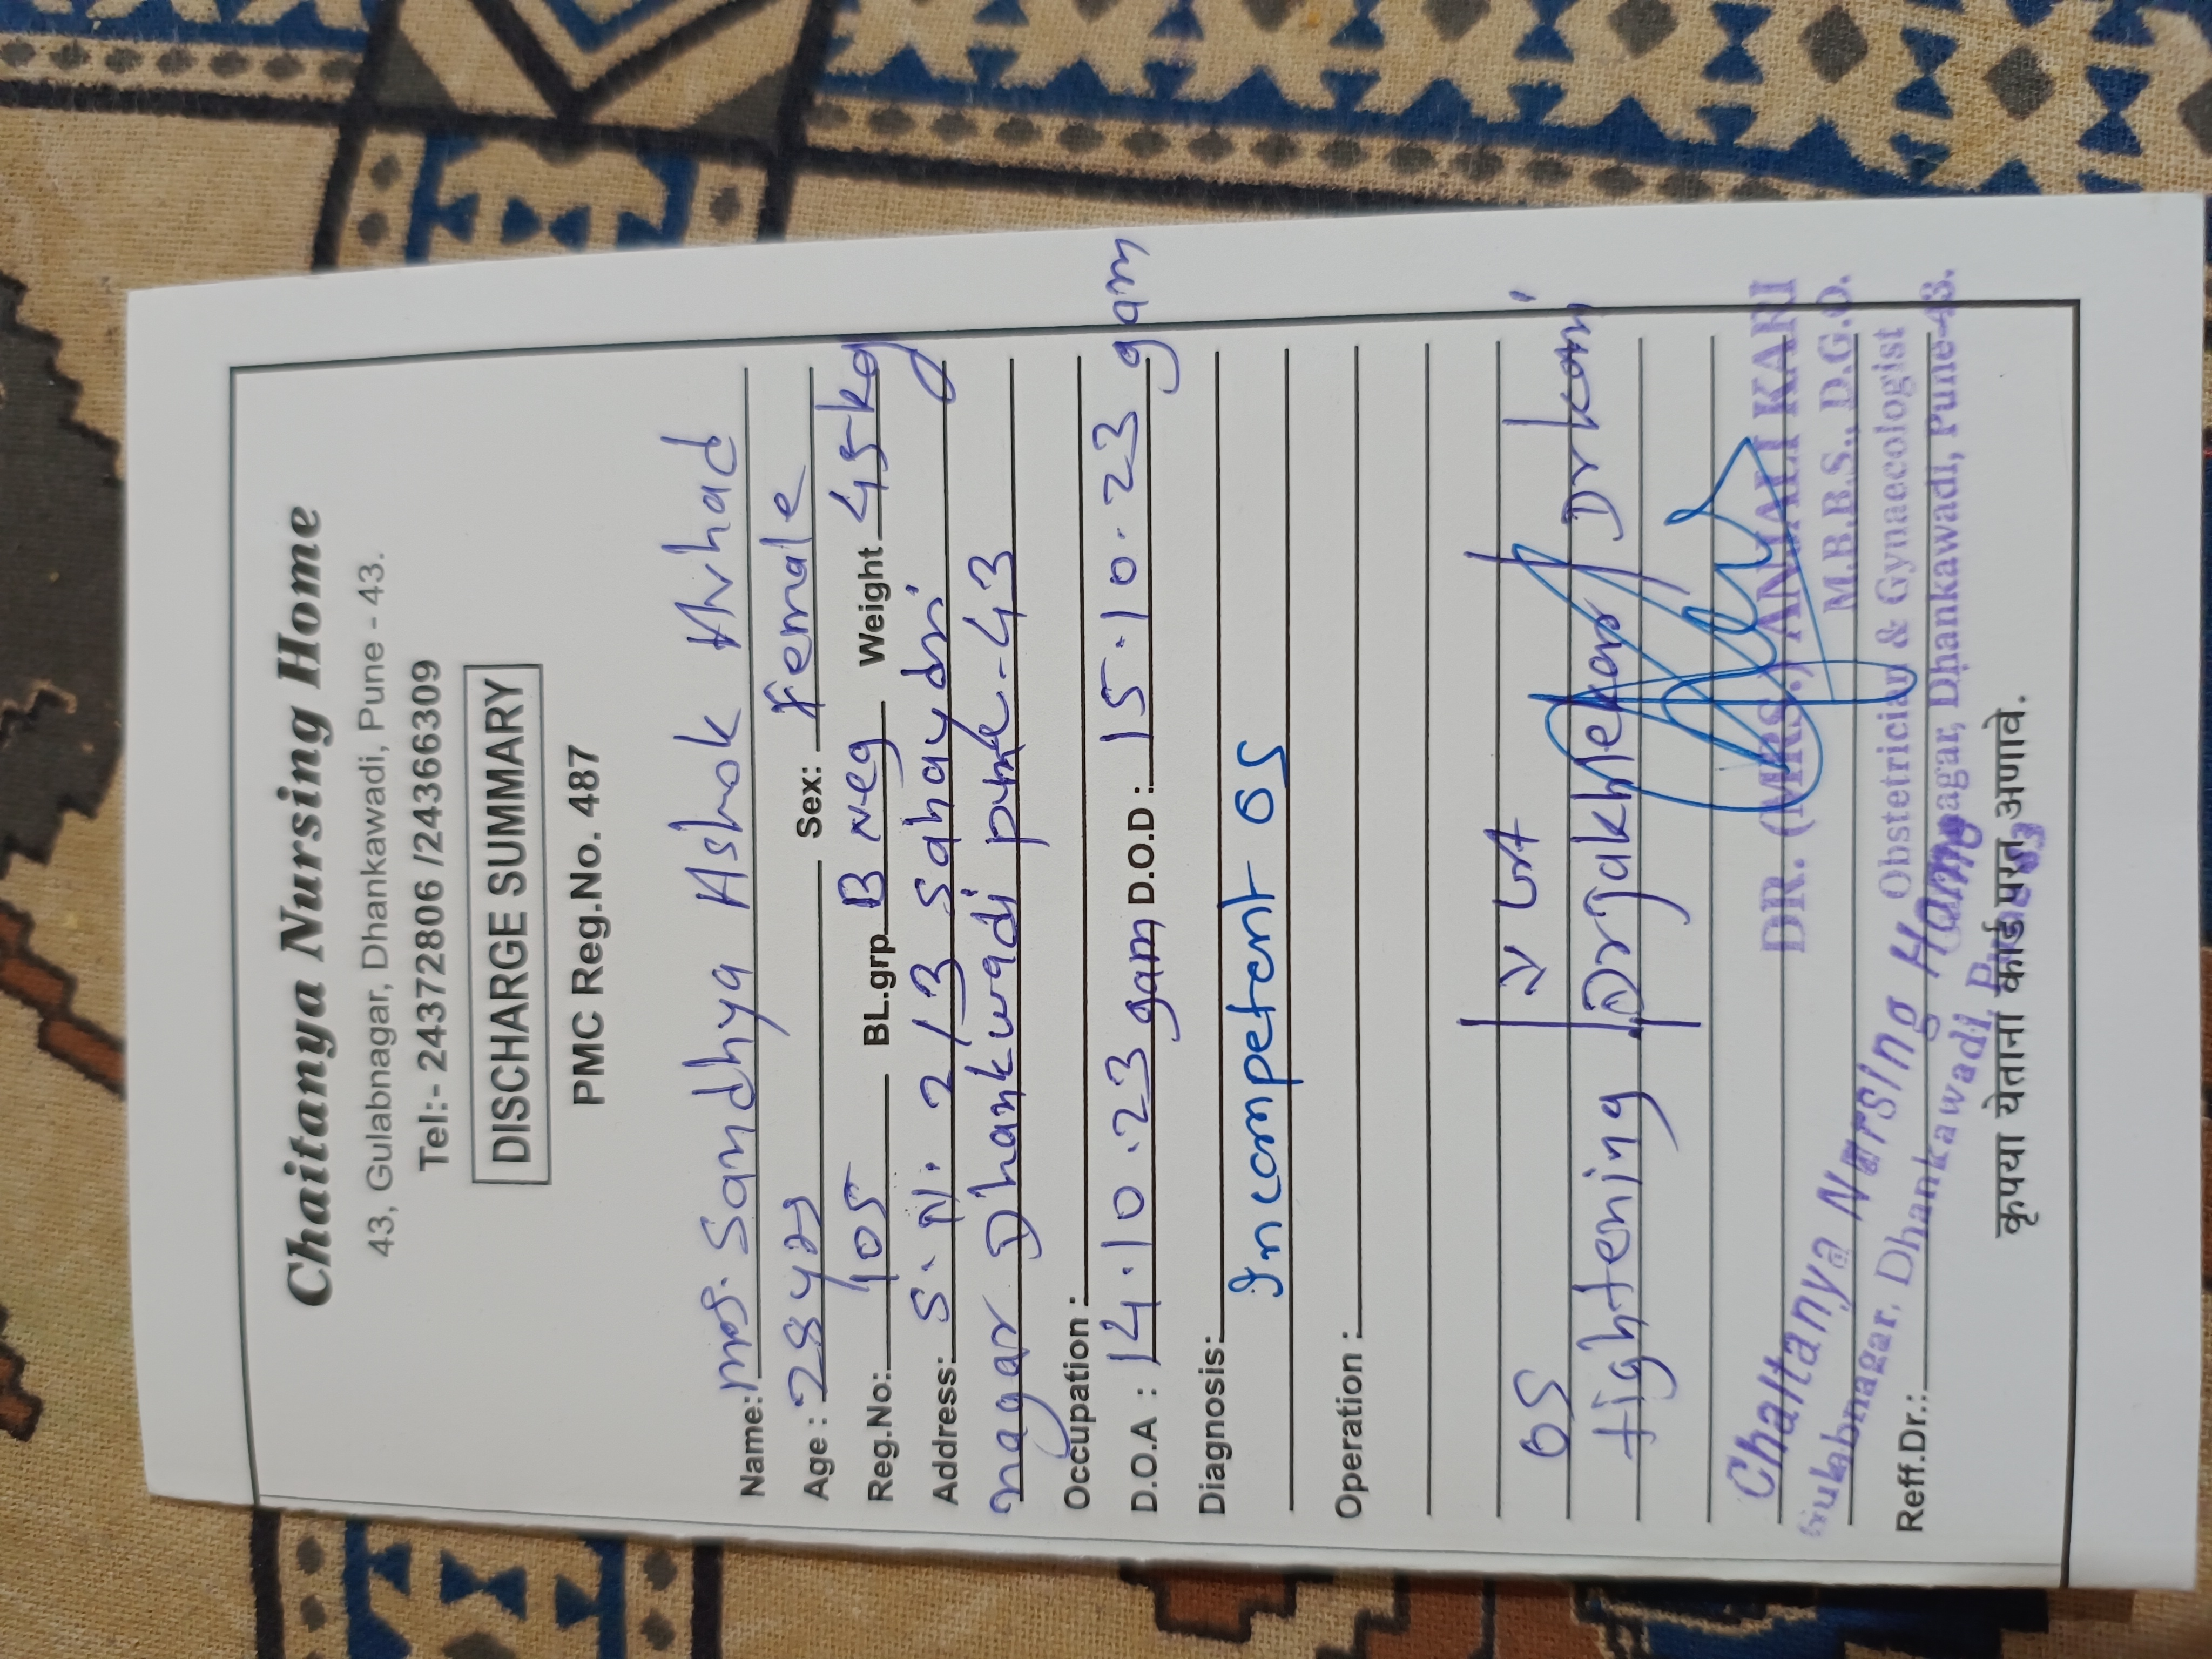 Chaitanya Nursing Home
43, Gulabnagar, Dhankawadi, Pune - 43.
Tel:- 24372806 /24366309
DISCHARGE SUMMARY
PMC Reg.No. 487
Name: mrs. Sandhya Ashok Avhad
Age : 28 yrs Sex: Female
Reg.No: 105 BL.grp B neg Weight 45 kg
Address: S. N. 2/3 Sahaydri
nagar Dhankwadi pune-43
Occupation :
D.O.A : 14.10.23 9am D.O.D : 15.10.23 9 am
Diagnosis:
Incompetent OS
Operation :
OS
tightening Dr Jakhlekar Dr kari
DR. (MRS.) ANJALI KARI
M.B.B.S., D.G.O.
Obstetrician & Gynaecologist
Chaitanya Nursing Home
Gulabnagar, Dhankawadi, Pune-43.
Reff.Dr.:
कृपया येताना कार्ड परत आणावे.